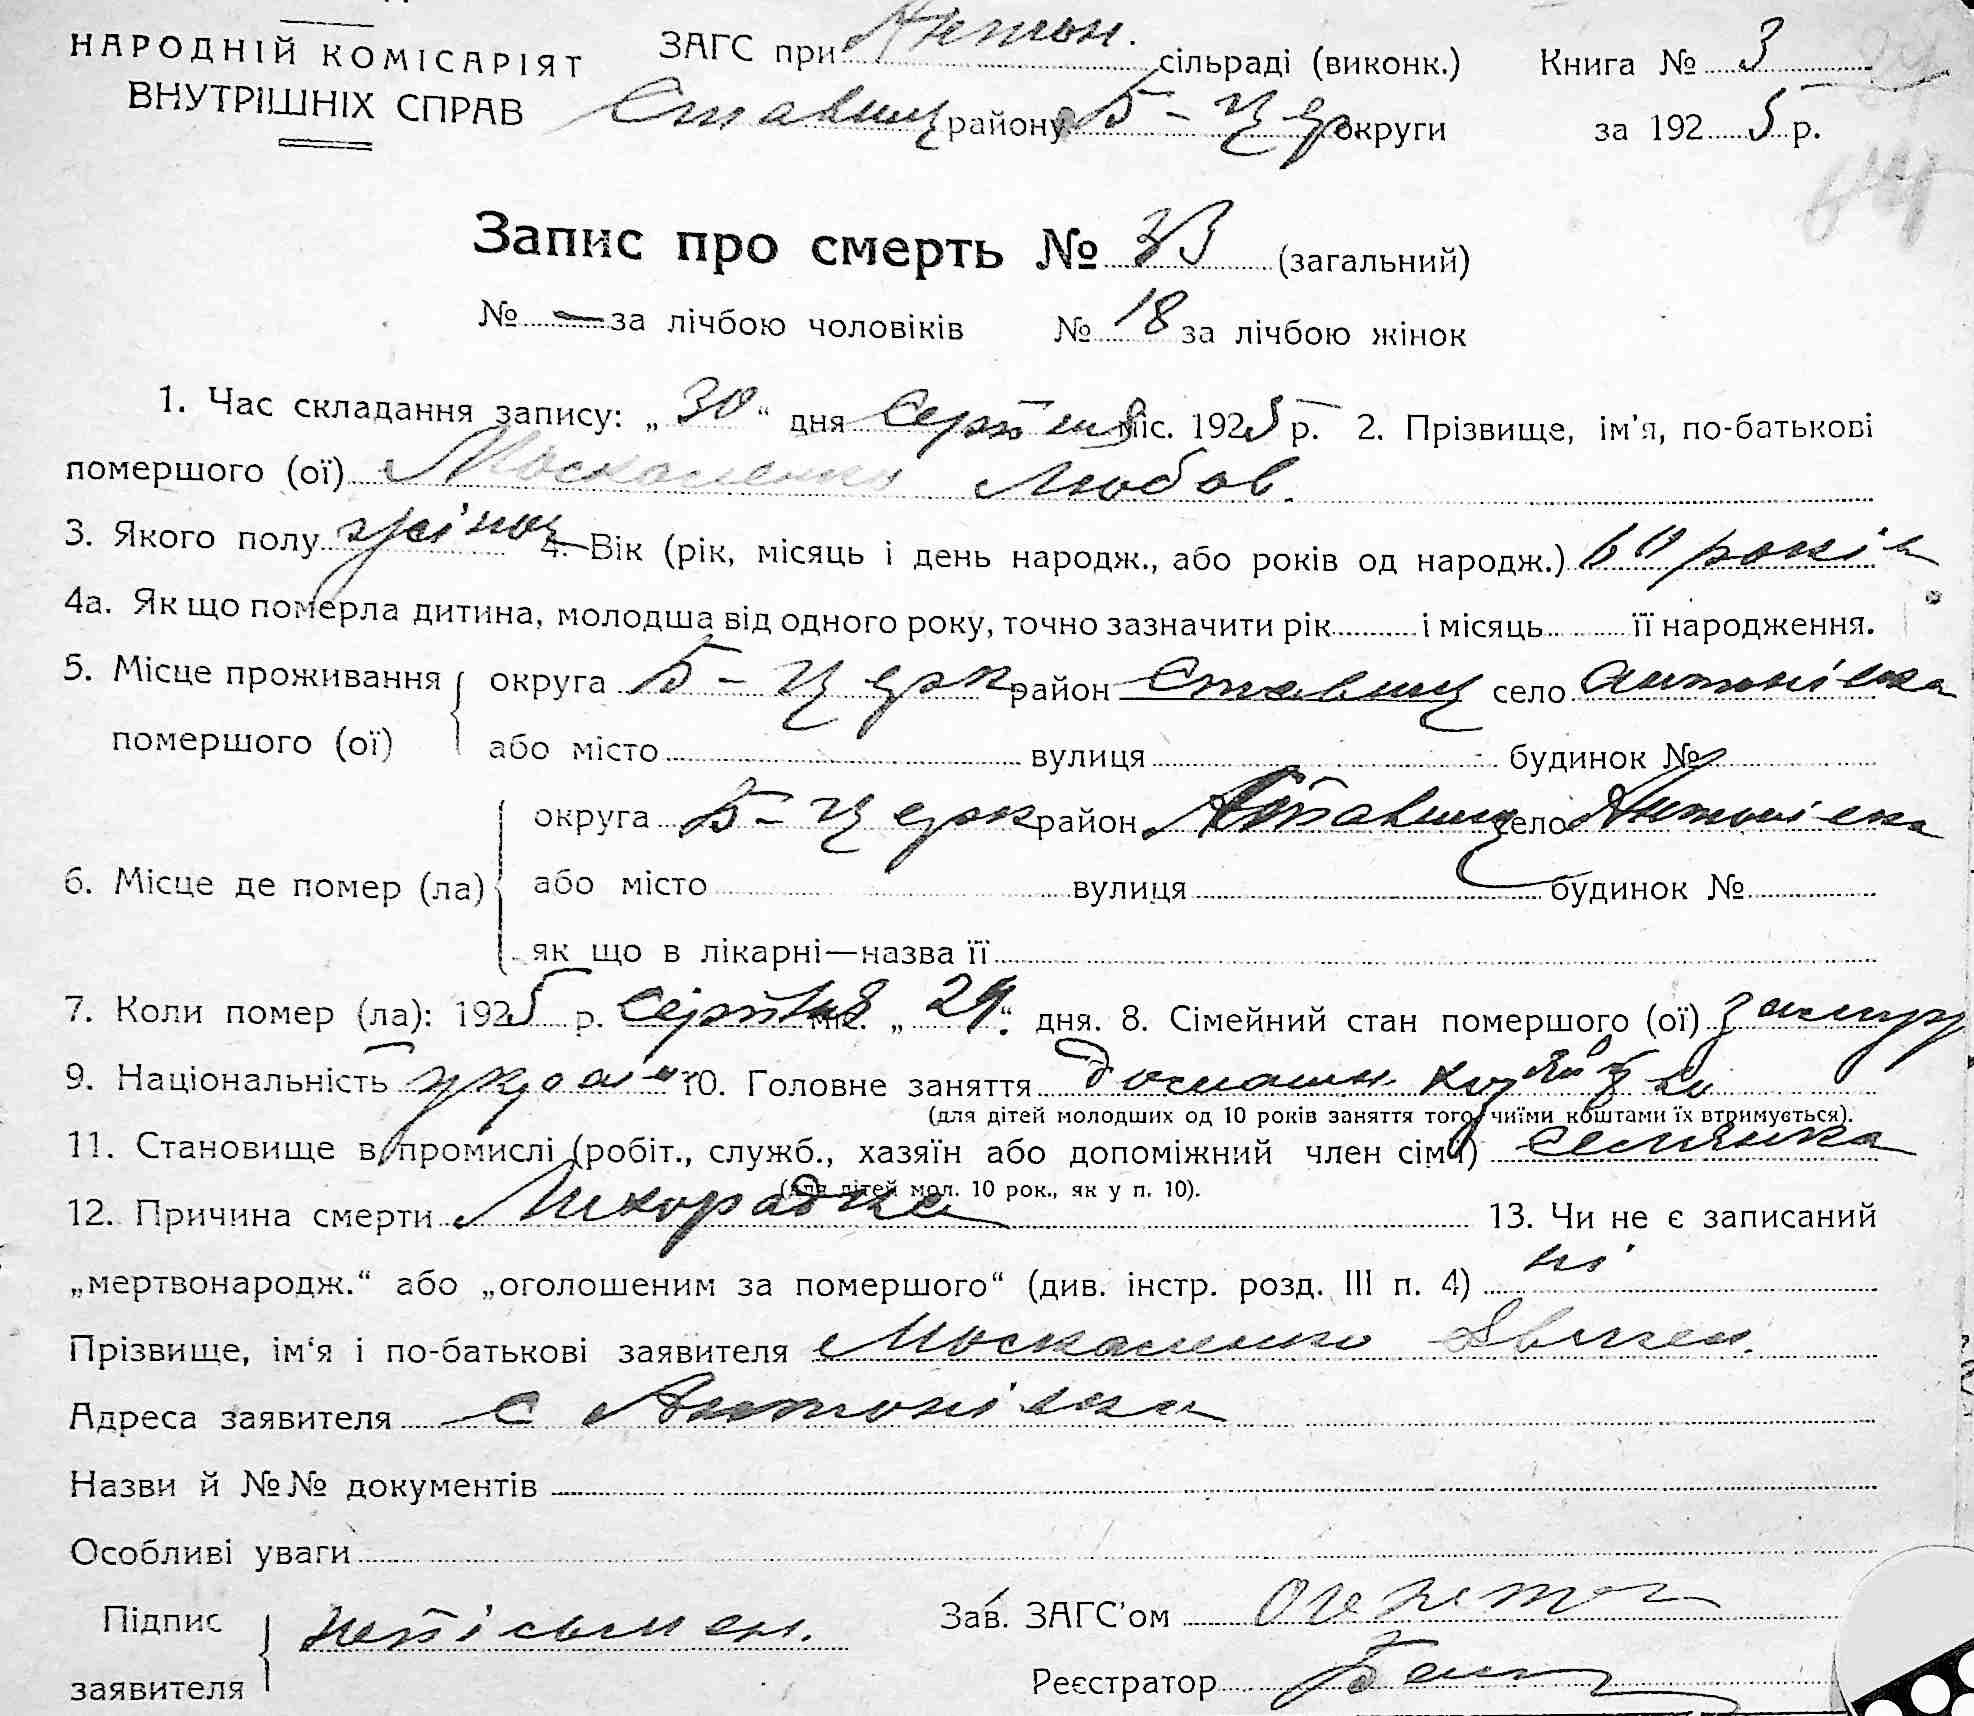 НАРОДНІЙ КОМІСАРІЯТ
ВНУТРІШНІХ СПРАВ
ЗАГС при Антон. сільраді (виконк.)
Ставищ району Б-Церк округи
Книга № 3
за 1925 р.
Запис про смерть № 33 (загальний)
№ — за лічбою чоловіків № 18 за лічбою жінок
1. Час складання запису: „30“ дня Серпня міс. 1925 р. 2. Прізвище, ім'я, по-батькові
помершого (ої) Москаленко Любов.
3. Якого полу жіноч 4. Вік (рік, місяць і день народж., або років од народж.) 60 років
4а. Як що померла дитина, молодша від одного року, точно зазначити рік і місяць її народження.
5. Місце проживання помершого (ої) округа Б-Церк район Ставищ село Антонівка
або місто вулиця будинок №
6. Місце де помер (ла) округа Б-Церк район Ставищ село Антонівка
або місто вулиця будинок №
як що в лікарні—назва її
7. Коли помер (ла): 1925 р. Серпня міс. „29“ дня. 8. Сімейний стан помершого (ої) замуж
9. Національність україн 10. Головне заняття домашн.
(для дітей молодших од 10 років заняття того, чиїми коштами їх втримується).
11. Становище в промислі (робіт., служб., хазяїн або допоміжний член сім'ї) селянка
(для дітей мол. 10 рок., як у п. 10).
12. Причина смерти Лихорадка 13. Чи не є записаний
„мертвонародж.“ або „оголошеним за помершого“ (див. інстр. розд. III п. 4) ні
Прізвище, ім'я і по-батькові заявителя Москаленко
Адреса заявителя с Антонівка
Назви й №№ документів
Особливі уваги
Підпис заявителя непісьмен.
Зав. ЗАГС'ом
Реєстратор